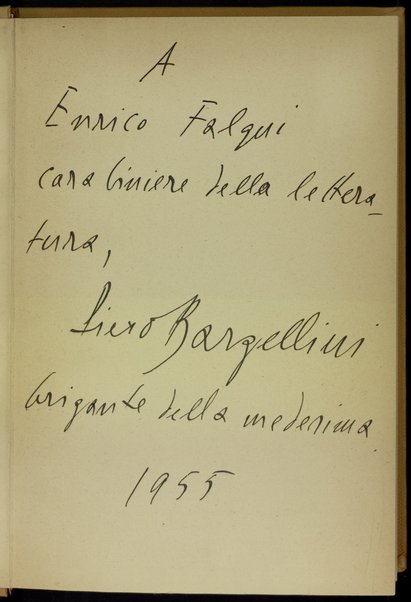 A
Enrico Falqui
carabiniere della lettera-
tura,
Piero Bargellini
brigante della medesima
1955